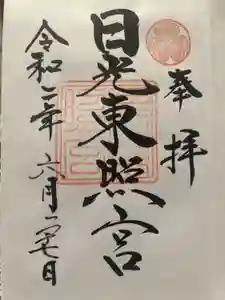 奉拝
日光東照宮
令和二年六月二七日